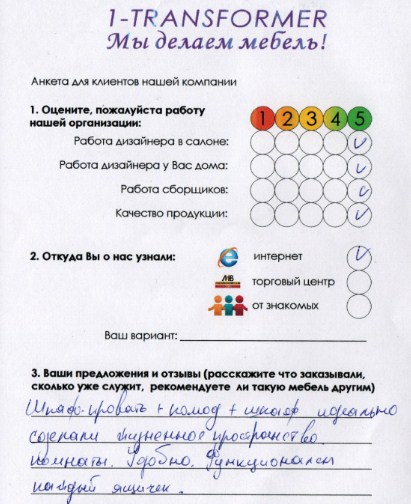 1-TRANSFORMER
Мы делаем мебель!
Анкета для клиентов нашей компании
1. Оцените, пожалуйста работу
нашей организации:
1 2 3 4 5
Работа дизайнера в салоне:
Работа дизайнера у Вас дома:
Работа сборщиков:
Качество продукции:
2. Откуда Вы о нас узнали:
интернет
МВ
торговый центр
от знакомых
Ваш вариант:
3. Ваши предложения и отзывы (расскажите что заказывали,
сколько уже служит, рекомендуете ли такую мебель другим)
Шкаф-кровать + комод + шкаф идеально
сделали жизненное пространство
комнаты. Удобно. Функционален
каждый ящичек.